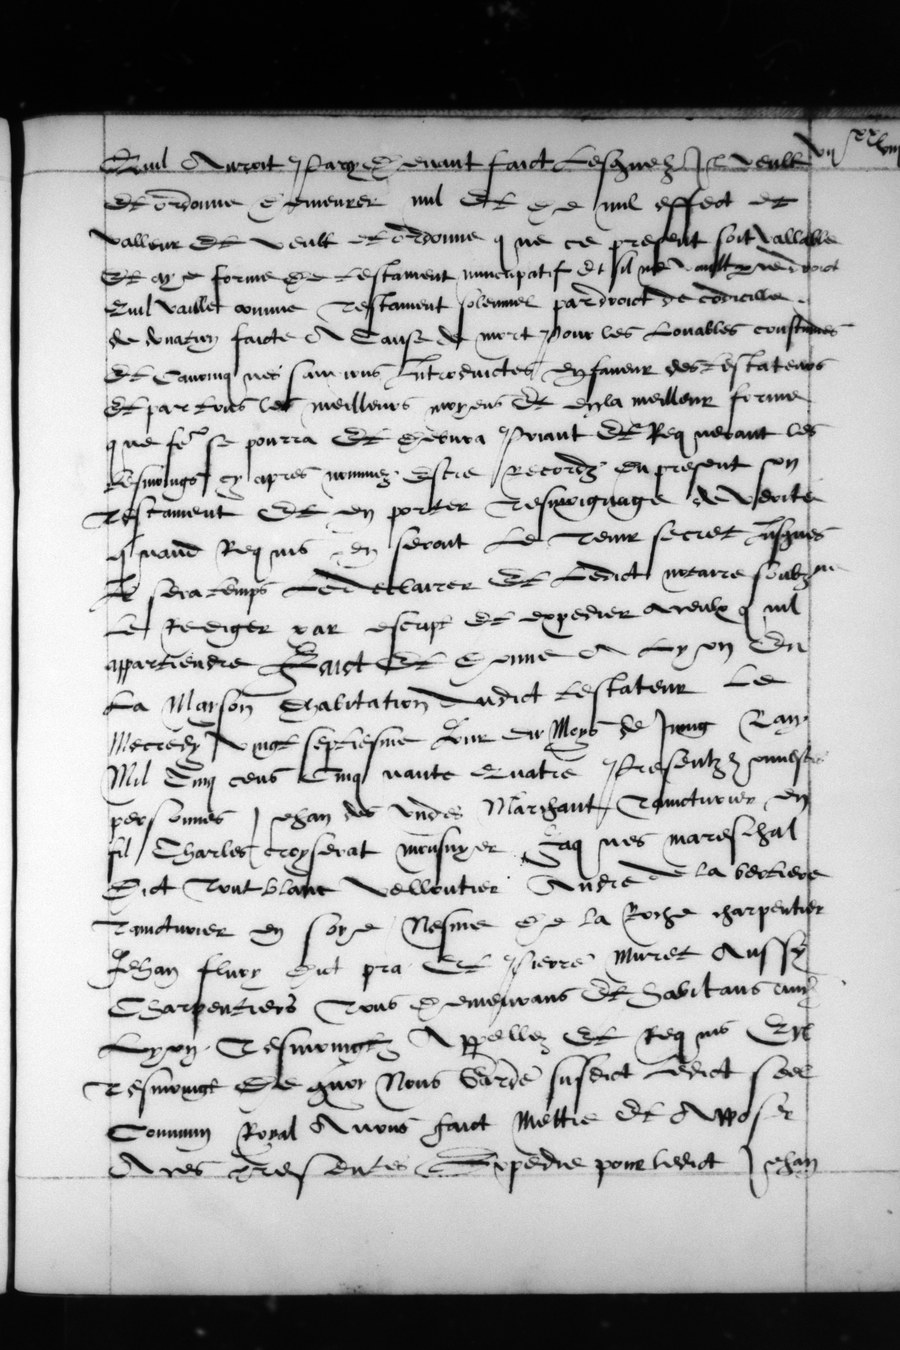 Quil Auroit Par cy devant faict Lesquelz Il veult
Et ordonne demeurer nul Et de nul effect et
valleur Et veult et ordonne que ce present soit vallable
Et aye forme de testament nuncupatif Et sil ne vault
Quil vaille comme Testament solemnel par droict de codicille
de donation faicte A Cause de mort Pour les Louables coustumes
Et Canoniques sanctions Introduictes En faveur des testateurs
Et par tous les meilleurs moyens Et en la meilleur forme
que se pourra Et debvra Priant Et Requerant les
tesmoings cy apres nommez Estre Recordz du present son
Testament Et en porter Tesmoignage de verite
quand Requis En seront Le Tenir secret Jusques
Il sera temps Le declairer Et Ledict notaire soubzsigne
Le Rediger par escript et expedier a ceulx quil
appartiendra Faict Et Donne A Lyon En
La Mayson dhabitation dudict testateur Le
Mecredy Vingt septiesme Jour du Moys de Jung Lan
Mil Cinq cens Cinquante Quatre Presentz honnestes
personnes Jehan des Undes Marchant Taincturier en
fil Charles Croyserat Jaques mareschal
Dict Tout blanc Velloutier Andre de la bertiere
Taincturier en soye Nesme de la Roche charpentier
Jehan flury dict pra Et Pierre Muret Aussy
Charpentiers Tous demeurans Et habitans audict
Lyon Tesmoingtz Appellez Et Requis En
Tesmoingt De quoy Nous Garde susdict Ledict seel
Commun Royal Avons faict Mettre Et Apposer
A ces Presentes Expedie pour ledict Jehan